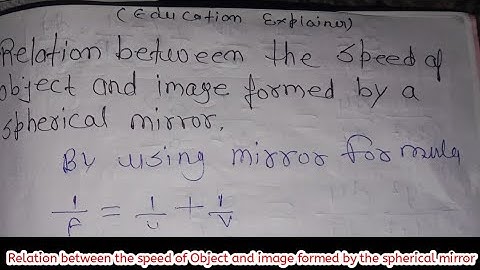 (Education Explainer)
Relation between the speed of
object and image formed by a
spherical mirror.
By using mirror formula
1/f = 1/u + 1/v
Relation between the speed of Object and image formed by the spherical mirror